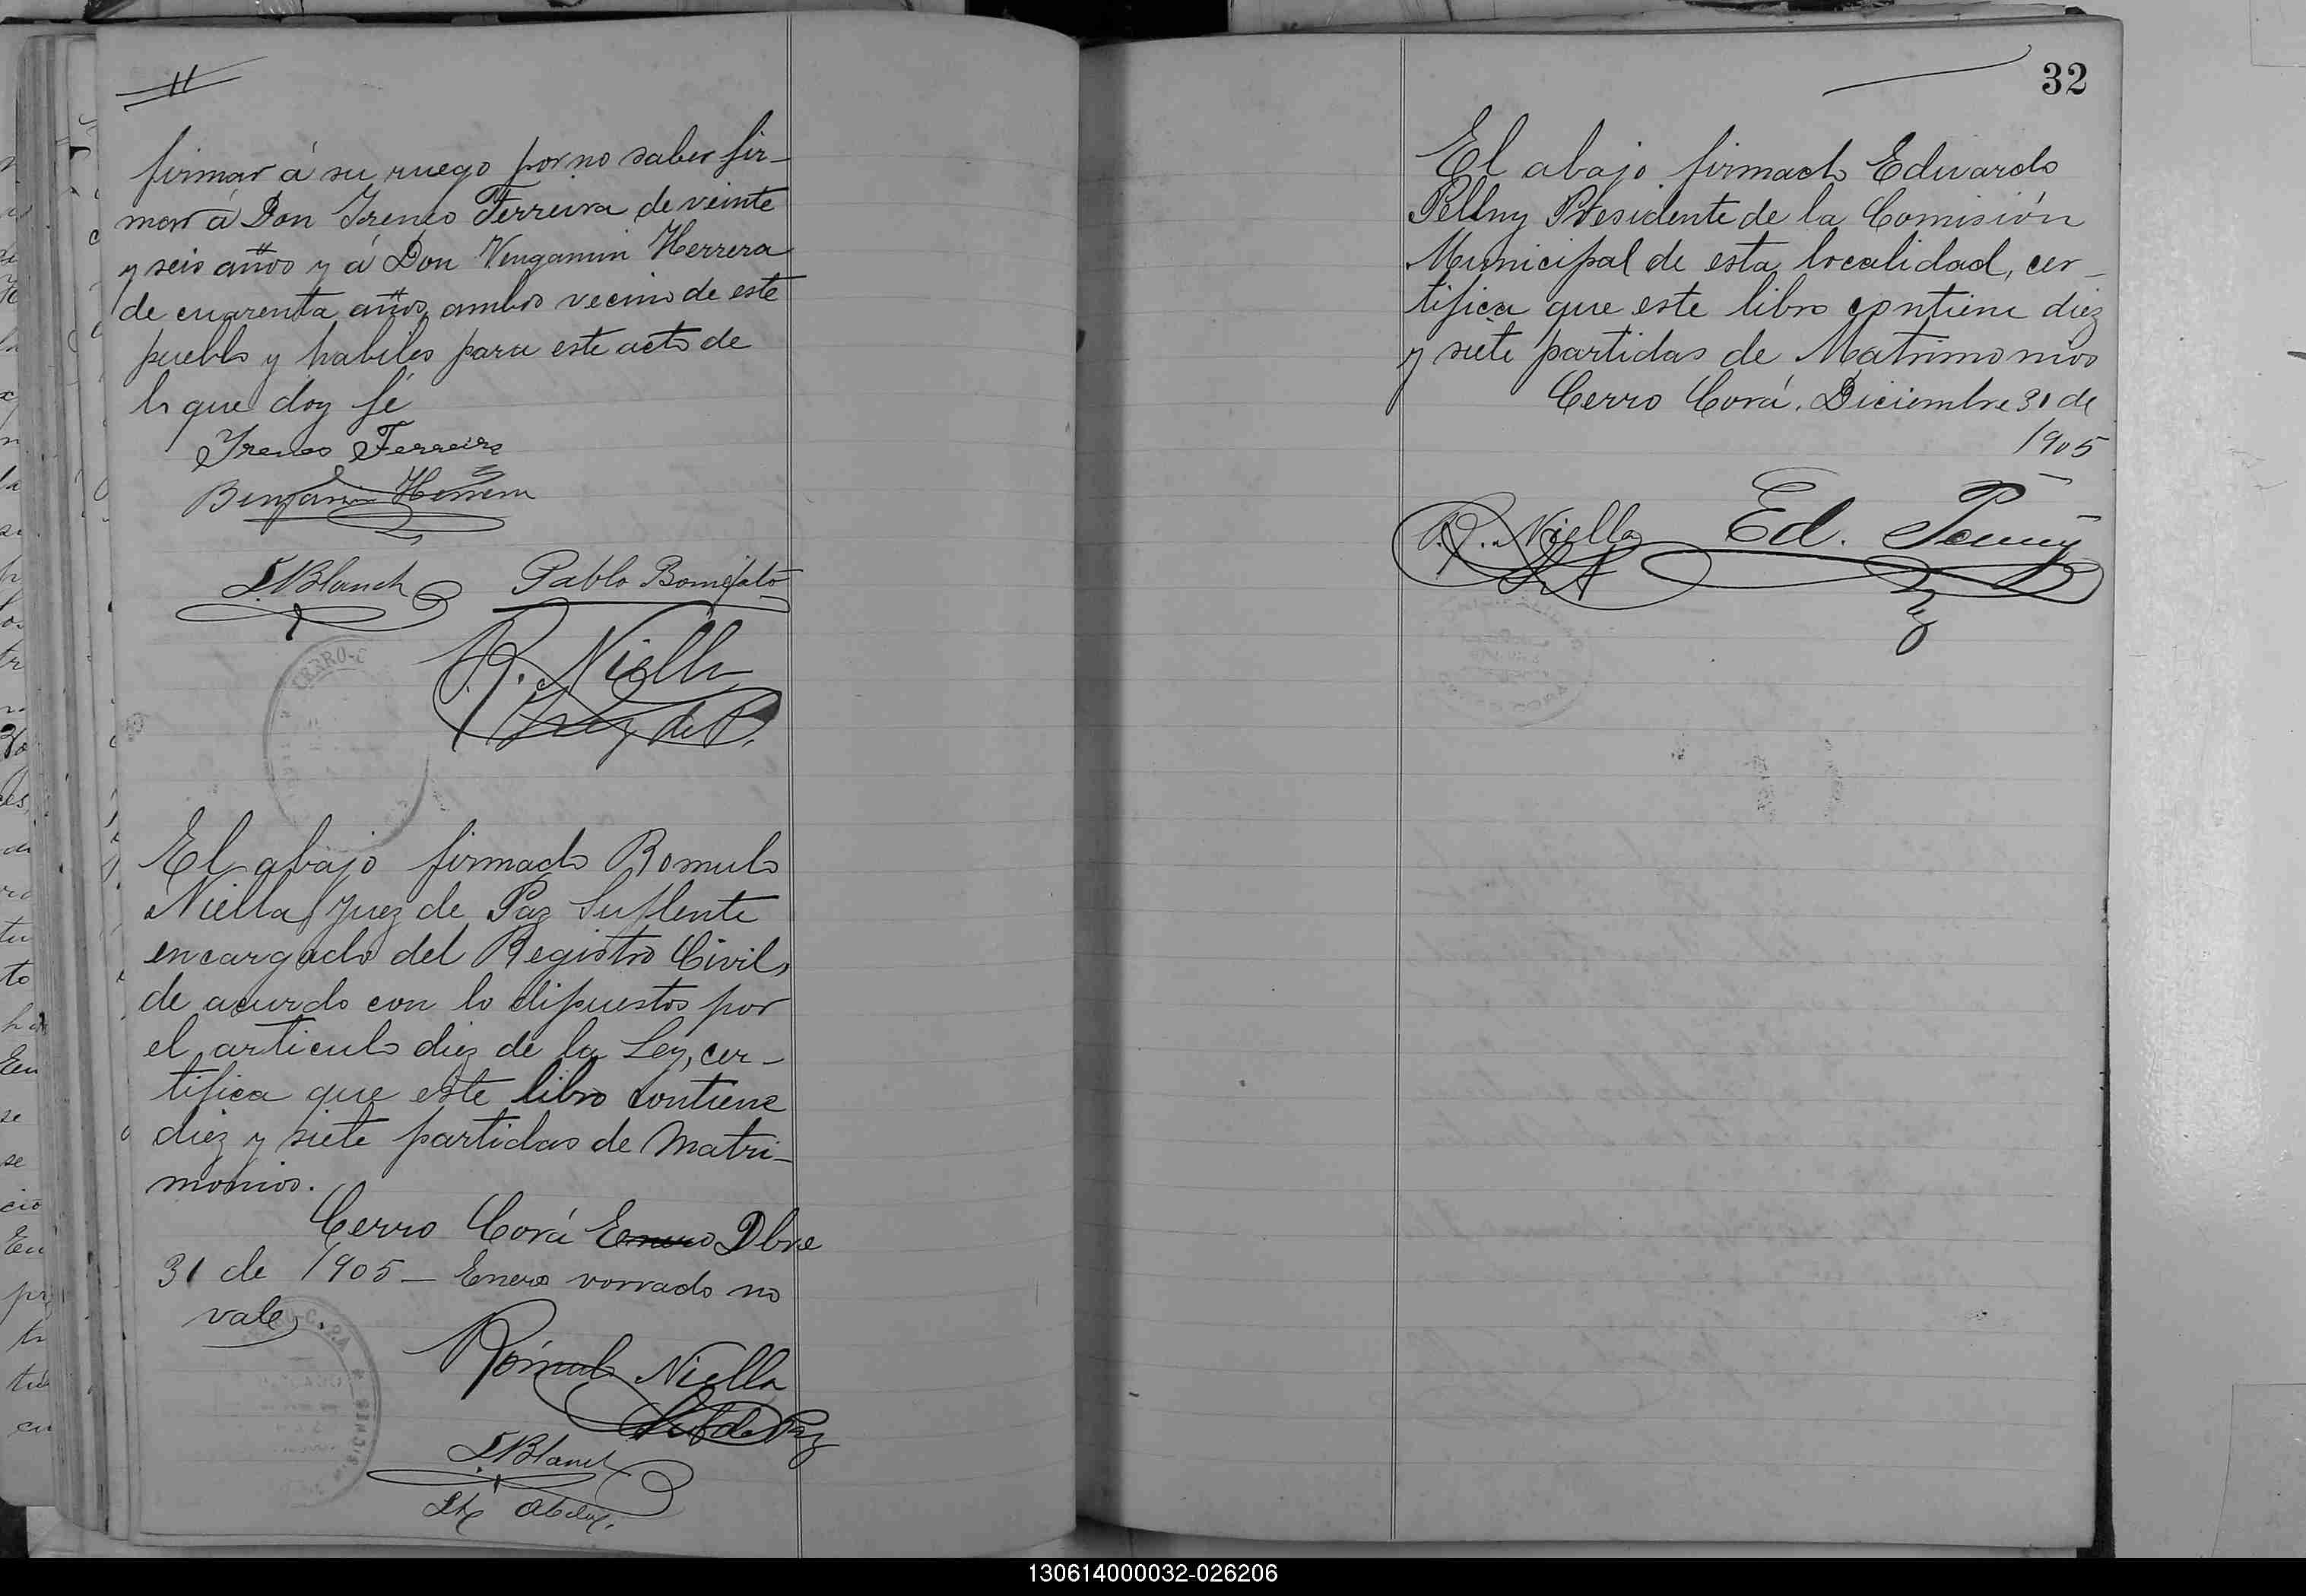 firmar á su ruego por no saber fir-
mar á Don Ireneo Ferreira de veinte
y seis años y á Don Vengamin Herrera
de cuarenta años, ambos vecino de este
pueblo y habiles para este acto de
lo que doy fé
Ireneo Ferreira
Benjamin Herrera
Blanch Pablo Bonifato
R. Niella
Juez de P.
CERRO-C
El abajo firmado Romulo
Niella, Juez de Paz Suplente
encargado del Registro Civil,
de acuerdo con lo dipuestos por
el articulo diez de la Ley, cer-
tifica que este libro contiene
diez y siete partidas de Matri-
monios.
Cerro Corá Enero Dbre
31 de 1905 - Enero vorrado no
vale.
Rómulo Niella
de Paz
Blanch
32
El abajo firmado Eduardo
Presidente de la Comisión
Municipal de esta localidad, cer-
tifica que este libro contiene diez
y siete partidas de Matrimonios
Cerro Corá, Diciembre 31 de
1905
R. Niella Ed. Penny
130614000032-026206